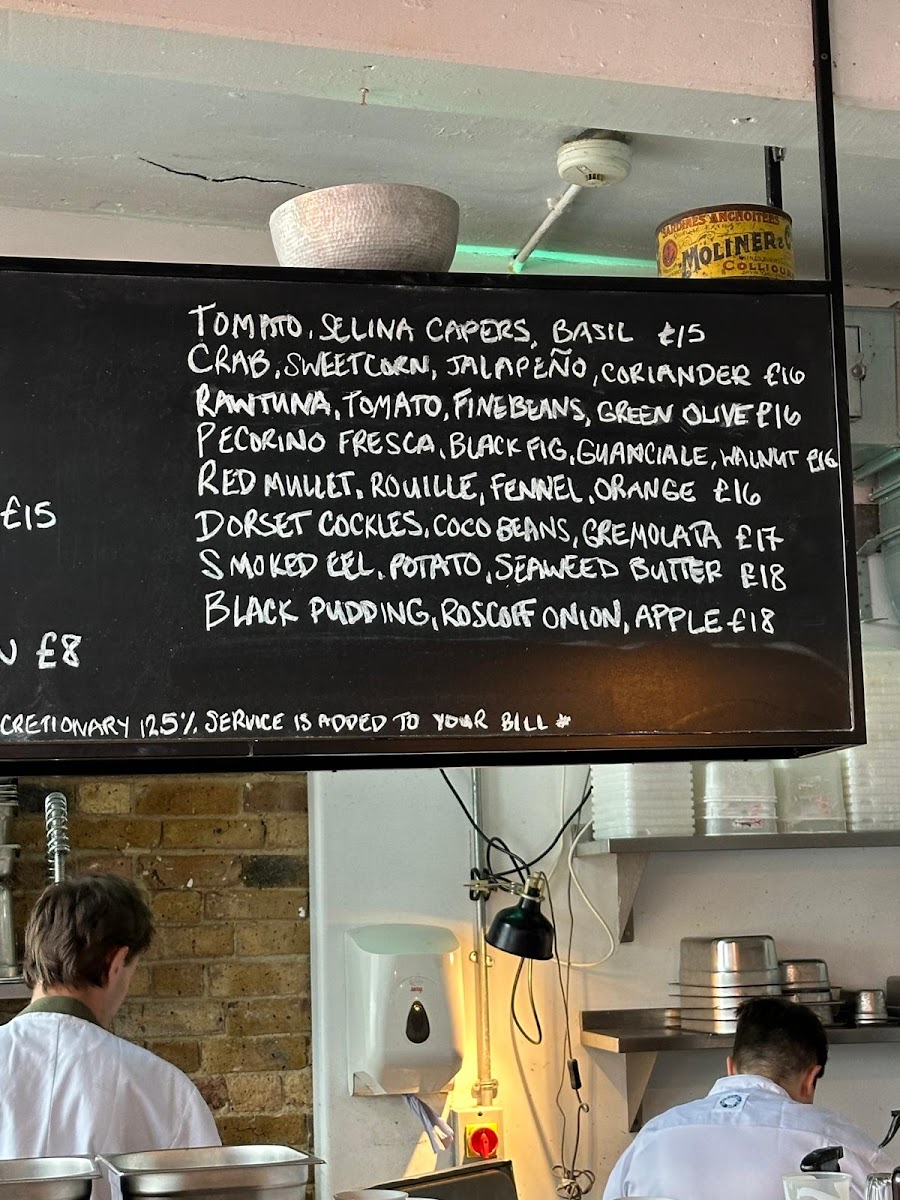 SARDINES ANCHOITÉES
MOLINER & C
COLLIOU
TOMATO, SELINA CAPERS, BASIL £15
CRAB, SWEETCORN, JALAPEÑO, CORIANDER £16
RAW TUNA, TOMATO, FINE BEANS, GREEN OLIVE £16
PECORINO FRESCA, BLACK FIG, GUANCIALE, WALNUT £16
RED MULLET, ROUILLE, FENNEL, ORANGE £16
£15
DORSET COCKLES, COCO BEANS, GREMOLATA £17
SMOKED EEL, POTATO, SEAWEED BUTTER £18
BLACK PUDDING, ROSCOFF ONION, APPLE £18
N £8
CRETIONARY 12.5% SERVICE IS ADDED TO YOUR BILL *